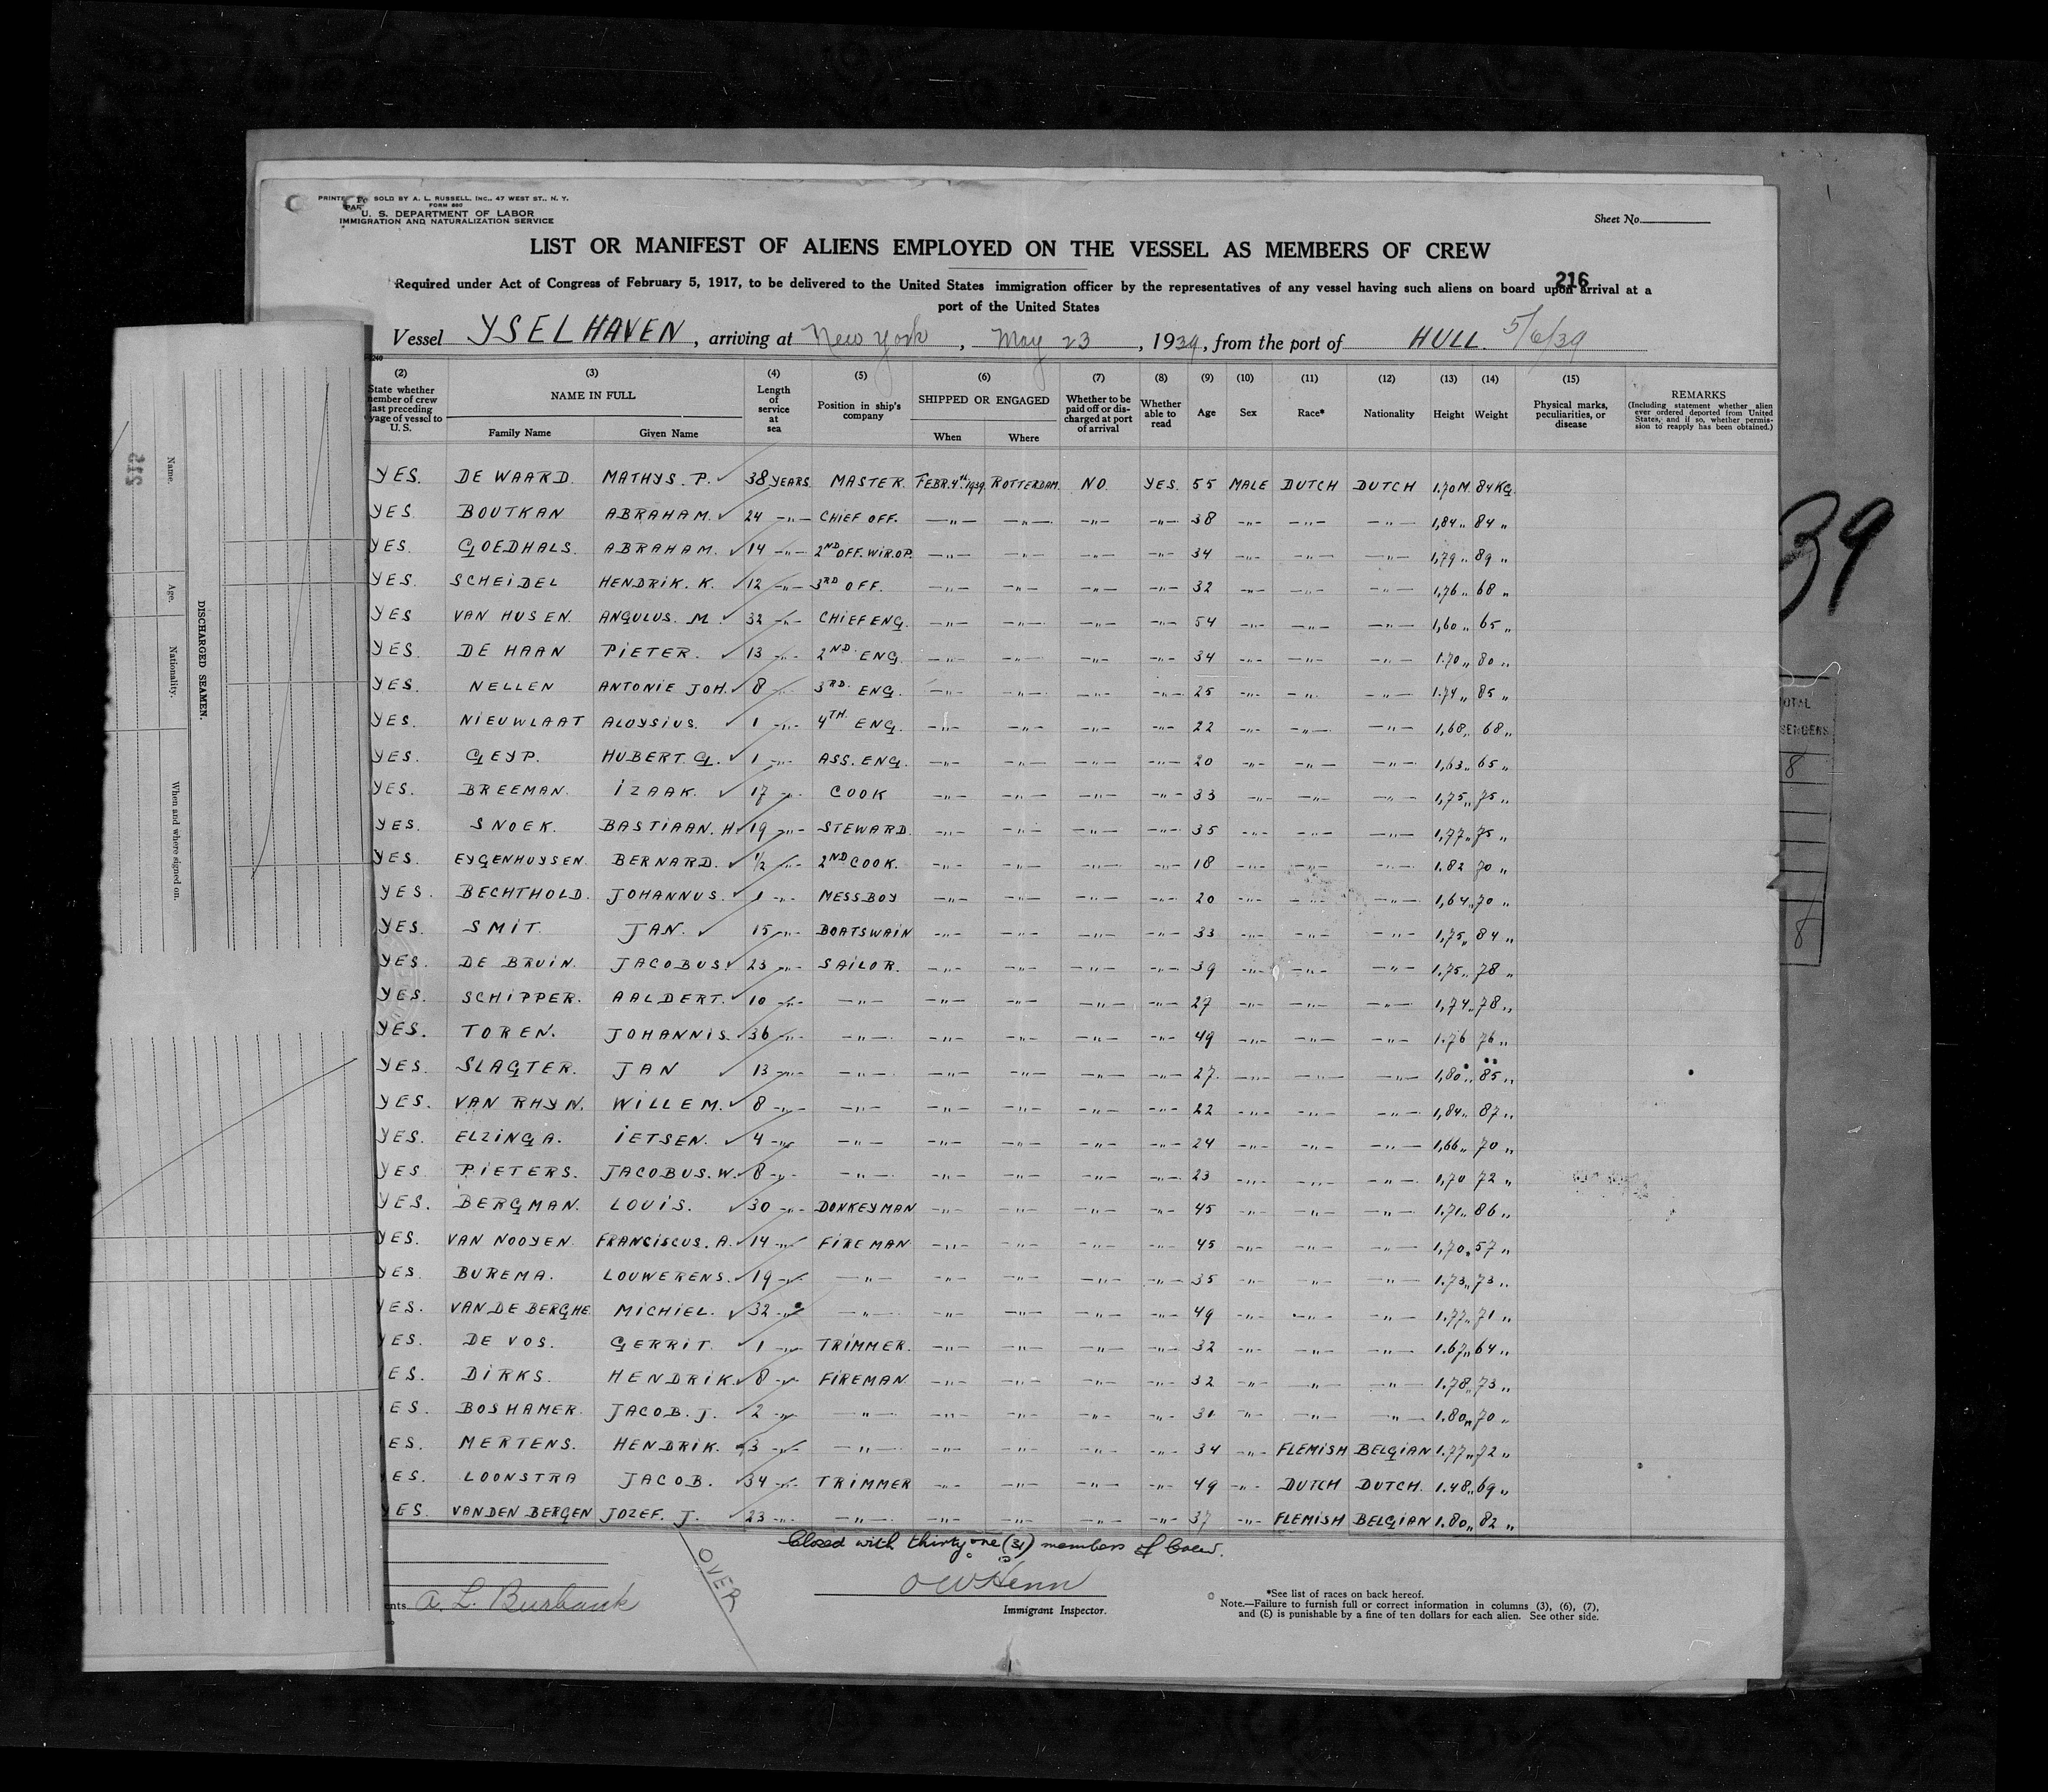 SOLD BY A. L. RUSSELL, INC., 47 WEST ST., N. Y.
FORM 680
U. S. DEPARTMENT OF LABOR
IMMIGRATION AND NATURALIZATION SERVICE
Sheet No.
LIST OR MANIFEST OF ALIENS EMPLOYED ON THE VESSEL AS MEMBERS OF CREW
216
Required under Act of Congress of February 5, 1917, to be delivered to the United States immigration officer by the representatives of any vessel having such aliens on board upon arrival at a
port of the United States
Vessel YSELHAVEN, arriving at New York, May 23, 1939, from the port of HULL. 5/6/39
(2) State whether member of crew last preceding voyage of vessel to U. S.
(3) NAME IN FULL Family Name Given Name
(4) Length of service at sea
(5) Position in ship's company
(6) SHIPPED OR ENGAGED When Where
(7) Whether to be paid off or discharged at port of arrival
(8) Whether able to read
(9) Age
(10) Sex
(11) Race*
(12) Nationality
(13) Height
(14) Weight
(15) Physical marks, peculiarities, or disease
REMARKS (Including statement whether alien ever ordered deported from United States, and if so, whether permission to reapply has been obtained.)
YES. DE WAARD. MATHYS. P. 38 YEARS. MASTER. FEBR. 4th 1939. ROTTERDAM. NO YES. 55 MALE DUTCH DUTCH 1.70 M. 84 KG.
YES BOUTKAN ABRAHAM. 24 -"- CHIEF OFF. -"- -"- -"- -"- 38 -"- -"- -"- 1,84 " 84 "
YES. GOEDHALS. ABRAHAM. 14 -"- 2ND OFF. WIR.OP. -"- -"- -"- -"- 34 -"- -"- -"- 1,79 " 89 "
YES. SCHEIDEL HENDRIK. K. 12 -"- 3RD OFF. -"- -"- -"- -"- 32 -"- -"- -"- 1,76 " 68 "
YES VAN HUSEN. ANGULUS. M. 32 -"- CHIEF ENG. -"- -"- -"- -"- 54 -"- -"- -"- 1,60 " 65 "
YES. DE HAAN PIETER. 13 -"- 2ND. ENG. -"- -"- -"- -"- 34 -"- -"- -"- 1.70 " 80 "
YES. NELLEN ANTONIE JOH. 8 -"- 3RD. ENG. -"- -"- -"- -"- 25 -"- -"- -"- 1.74 " 85 "
YES. NIEUWLAAT ALOYSIUS. 1 -"- 4TH. ENG. -"- -"- -"- -"- 22 -"- -"- -"- 1,68 " 68 "
YES. GEYP. HUBERT G. 1 -"- ASS. ENG. -"- -"- -"- -"- 20 -"- -"- -"- 1,63 " 65 "
YES. BREEMAN. IZAAK. 17 -"- COOK -"- -"- -"- -"- 33 -"- -"- -"- 1,75 " 75 "
YES. SNOEK. BASTIAAN. H. 19 -"- STEWARD. -"- -"- -"- -"- 35 -"- -"- -"- 1,77 " 75 "
YES. EYGENHUYSEN. BERNARD. 1/2 -"- 2ND COOK. -"- -"- -"- -"- 18 -"- -"- -"- 1.82 70 "
YES. BECHTHOLD. JOHANNUS. 1 -"- MESSBOY -"- -"- -"- -"- 20 -"- -"- -"- 1,64 " 70 "
YES. SMIT. JAN. 15 -"- BOATSWAIN -"- -"- -"- -"- 33 -"- -"- -"- 1,75 " 84 "
YES. DE BRUIN. JACOBUS. 23 -"- SAILOR. -"- -"- -"- -"- 39 -"- -"- -"- 1.75 " 78 "
YES. SCHIPPER. AALDERT. 10 -"- -"- -"- -"- -"- -"- 27 -"- -"- -"- 1,74 " 78 "
YES. TOREN. JOHANNIS. 36 -"- -"- -"- -"- -"- -"- 49 -"- -"- -"- 1.76 76 "
YES. SLAGTER. JAN 13 -"- -"- -"- -"- -"- -"- 27. -"- -"- -"- 1,80 " 85 "
YES. VAN RHYN. WILLEM. 8 -"- -"- -"- -"- -"- -"- 22 -"- -"- -"- 1,84 " 87 "
YES. ELZINGA. IETSEN. 4 -"- -"- -"- -"- -"- -"- 24 -"- -"- -"- 1,66 " 70 "
YES PIETERS. JACOBUS. W. 8 -"- -"- -"- -"- -"- -"- 23 -"- -"- -"- 1,70 72 "
YES. BERGMAN. LOUIS. 30 -"- DONKEYMAN -"- -"- -"- -"- 45 -"- -"- -"- 1.71 " 86 "
YES. VAN NOOYEN. FRANCISCUS. A. 14 -"- FIREMAN -"- -"- -"- -"- 45 -"- -"- -"- 1,70 " 57 "
YES. BUREMA. LOUWERENS. 19 -"- -"- -"- -"- -"- -"- 35 -"- -"- -"- 1.73 " 73 "
YES. VAN DE BERGHE MICHIEL. 32 -"- -"- -"- -"- -"- -"- 49 -"- -"- -"- 1.77 " 71 "
YES. DE VOS. GERRIT. 1 -"- TRIMMER. -"- -"- -"- -"- 32 -"- -"- -"- 1.67 " 64 "
ES. DIRKS. HENDRIK. 8 -"- FIREMAN. -"- -"- -"- -"- 32 -"- -"- -"- 1.78 " 73 "
ES. BOSHAMER. JACOB. J. 2 -"- -"- -"- -"- -"- -"- 31 -"- -"- -"- 1.80 " 70 "
ES. MERTENS. HENDRIK. 3 -"- -"- -"- -"- -"- -"- 34 -"- FLEMISH BELGIAN 1.77 " 72 "
YES. LOONSTRA JACOB. 34 -"- TRIMMER -"- -"- -"- -"- 49 -"- DUTCH DUTCH. 1.48 " 69 "
YES. VAN DEN BERGEN JOZEF. J. 23 -"- -"- -"- -"- -"- -"- 37 -"- FLEMISH BELGIAN 1.80 " 82 "
Closed with thirty one (31) members of Crew.
OVER
ents A. L. Burbank
O W Henn
Immigrant Inspector.
*See list of races on back hereof.
Note.—Failure to furnish full or correct information in columns (3), (6), (7),
and (8) is punishable by a fine of ten dollars for each alien. See other side.
215
DISCHARGED SEAMEN.
Name.
Age.
Nationality.
When and where signed on.
39
TOTAL
8
8